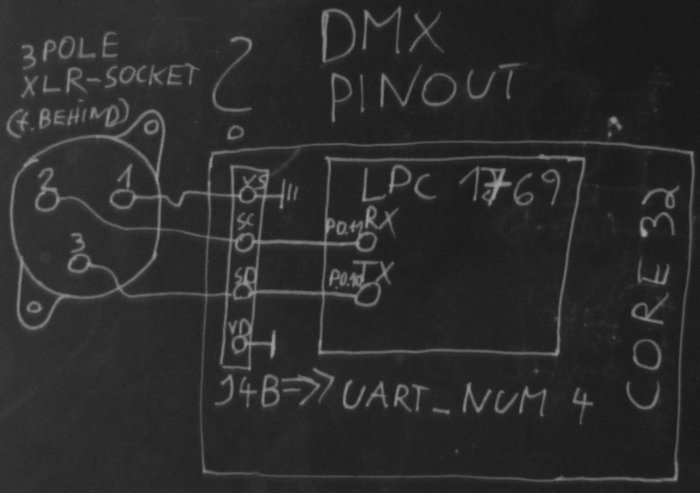 3 POLE
XLR-SOCKET
(f. BEHIND)
?
DMX
PINOUT
2
1
3
VS
SC
SD
VD
LPC 1769
P0.11
RX
P.0.10
TX
CORE 32
J4B=>> UART_NUM 4